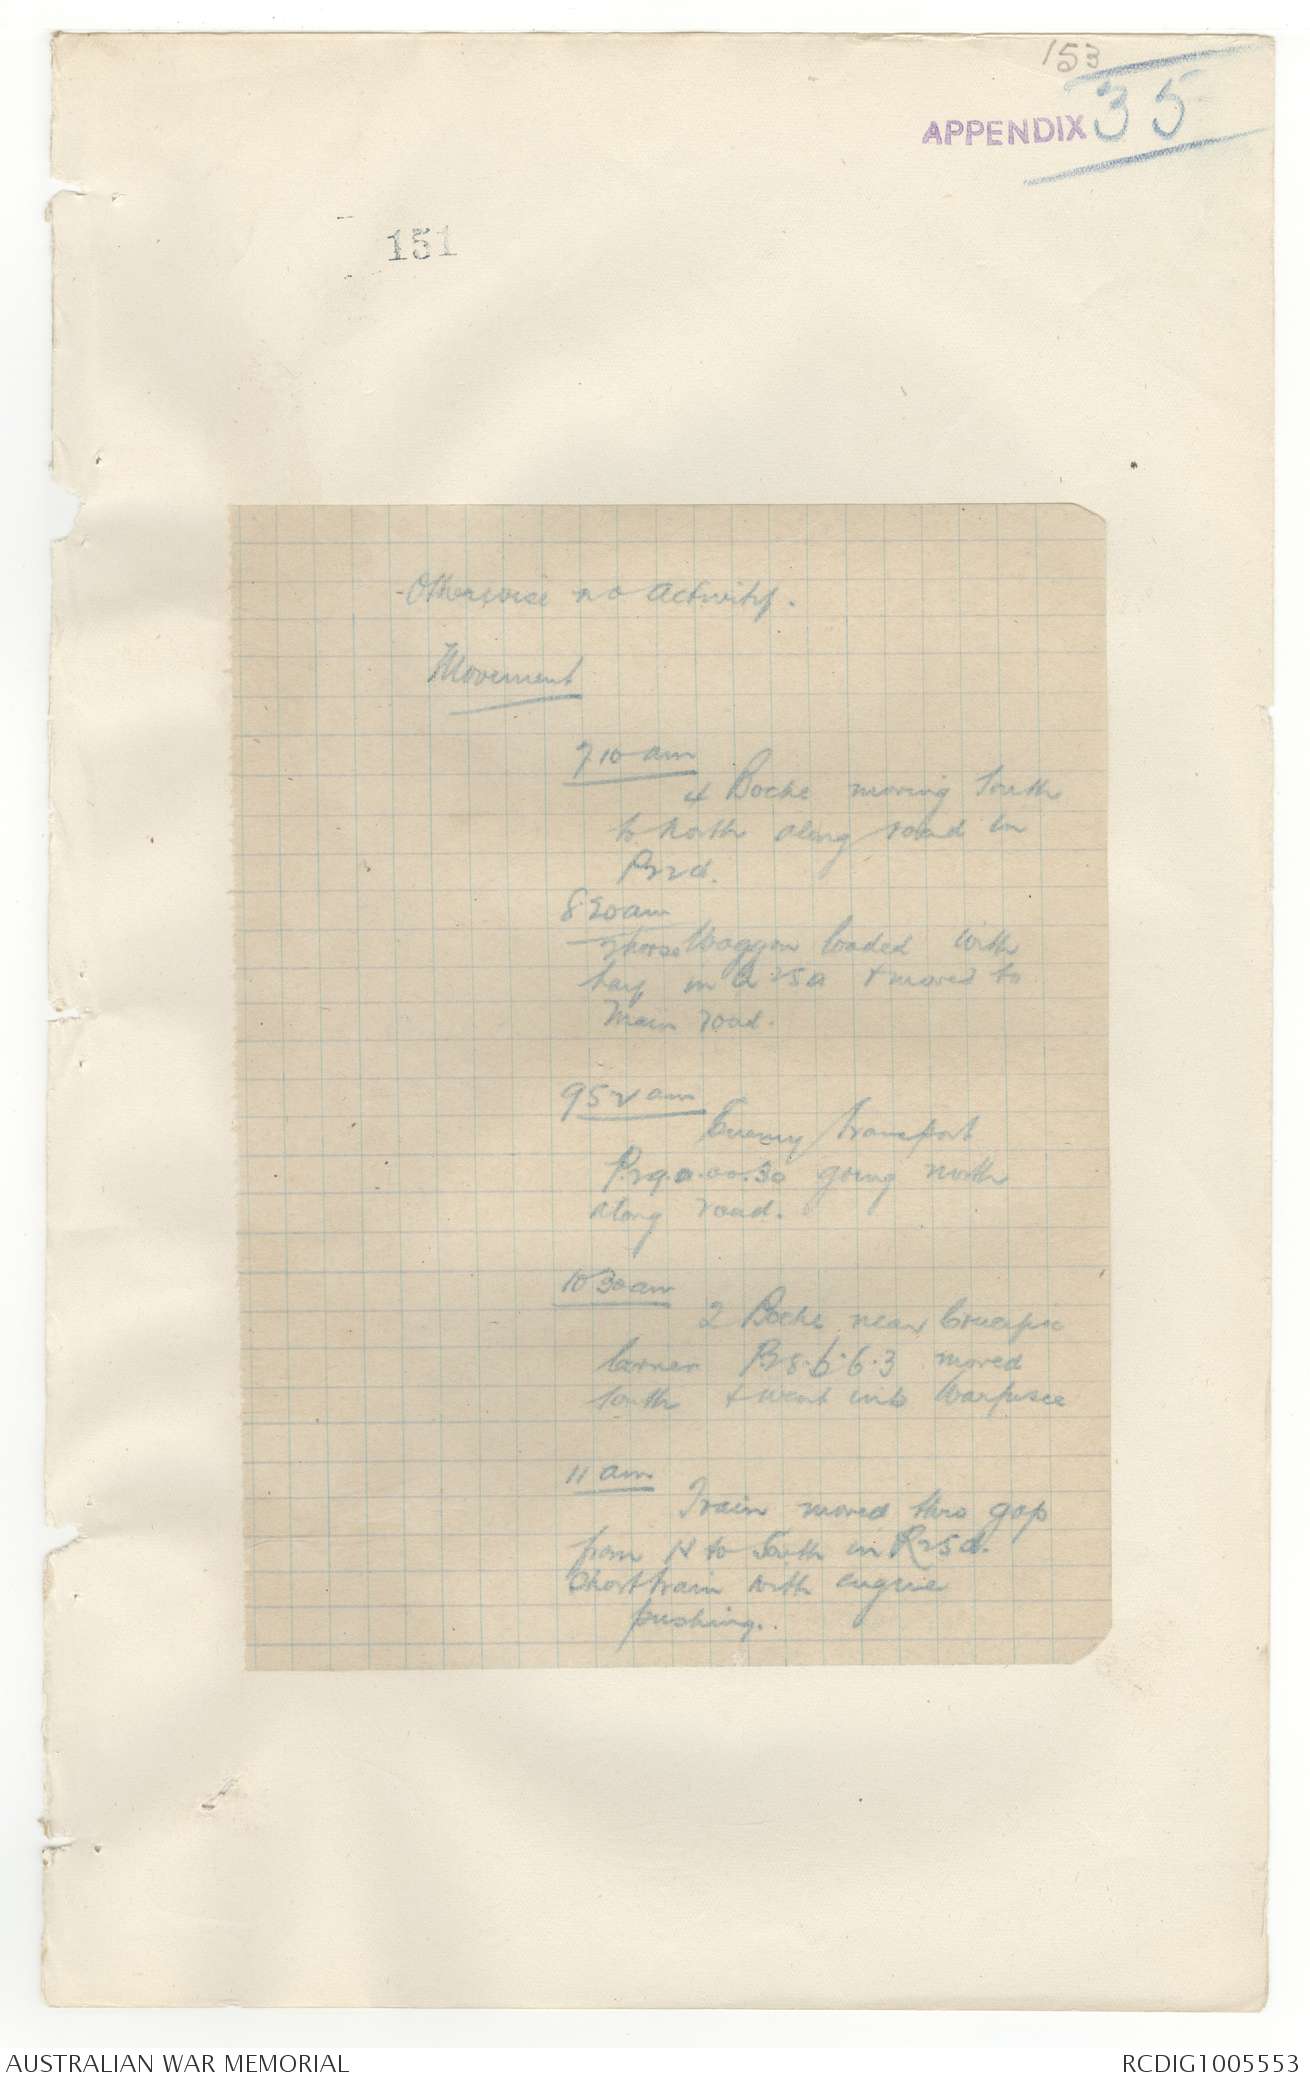 153
APPENDIX 35
151
Otherwise no activity.
Movement
7 10 am
4 Boche moving South
to North along road in
P22d.
8.20 am
2 horse Waggon loaded with
hay in Q.25a & moved to
Main road.
952 am
Enemy transport
P.29.a.00.30 going north
along road.
10 30 am
2 Boche near Crucifix
Corner P28.b.6.3 moved
South & went into Warfusee
11 am
Train moved thro gap
from N to South in R25d.
Short train with engine
pushing.
AUSTRALIAN WAR MEMORIAL
RCDIG1005553